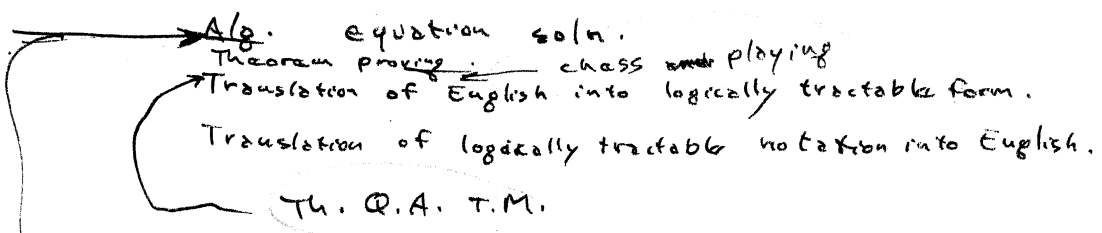 Alg. equation soln.
Theoram proving. chess playing
Translation of English into logically tractable form.
Translation of logically tractable notation into English.
Th. Q.A. T.M.